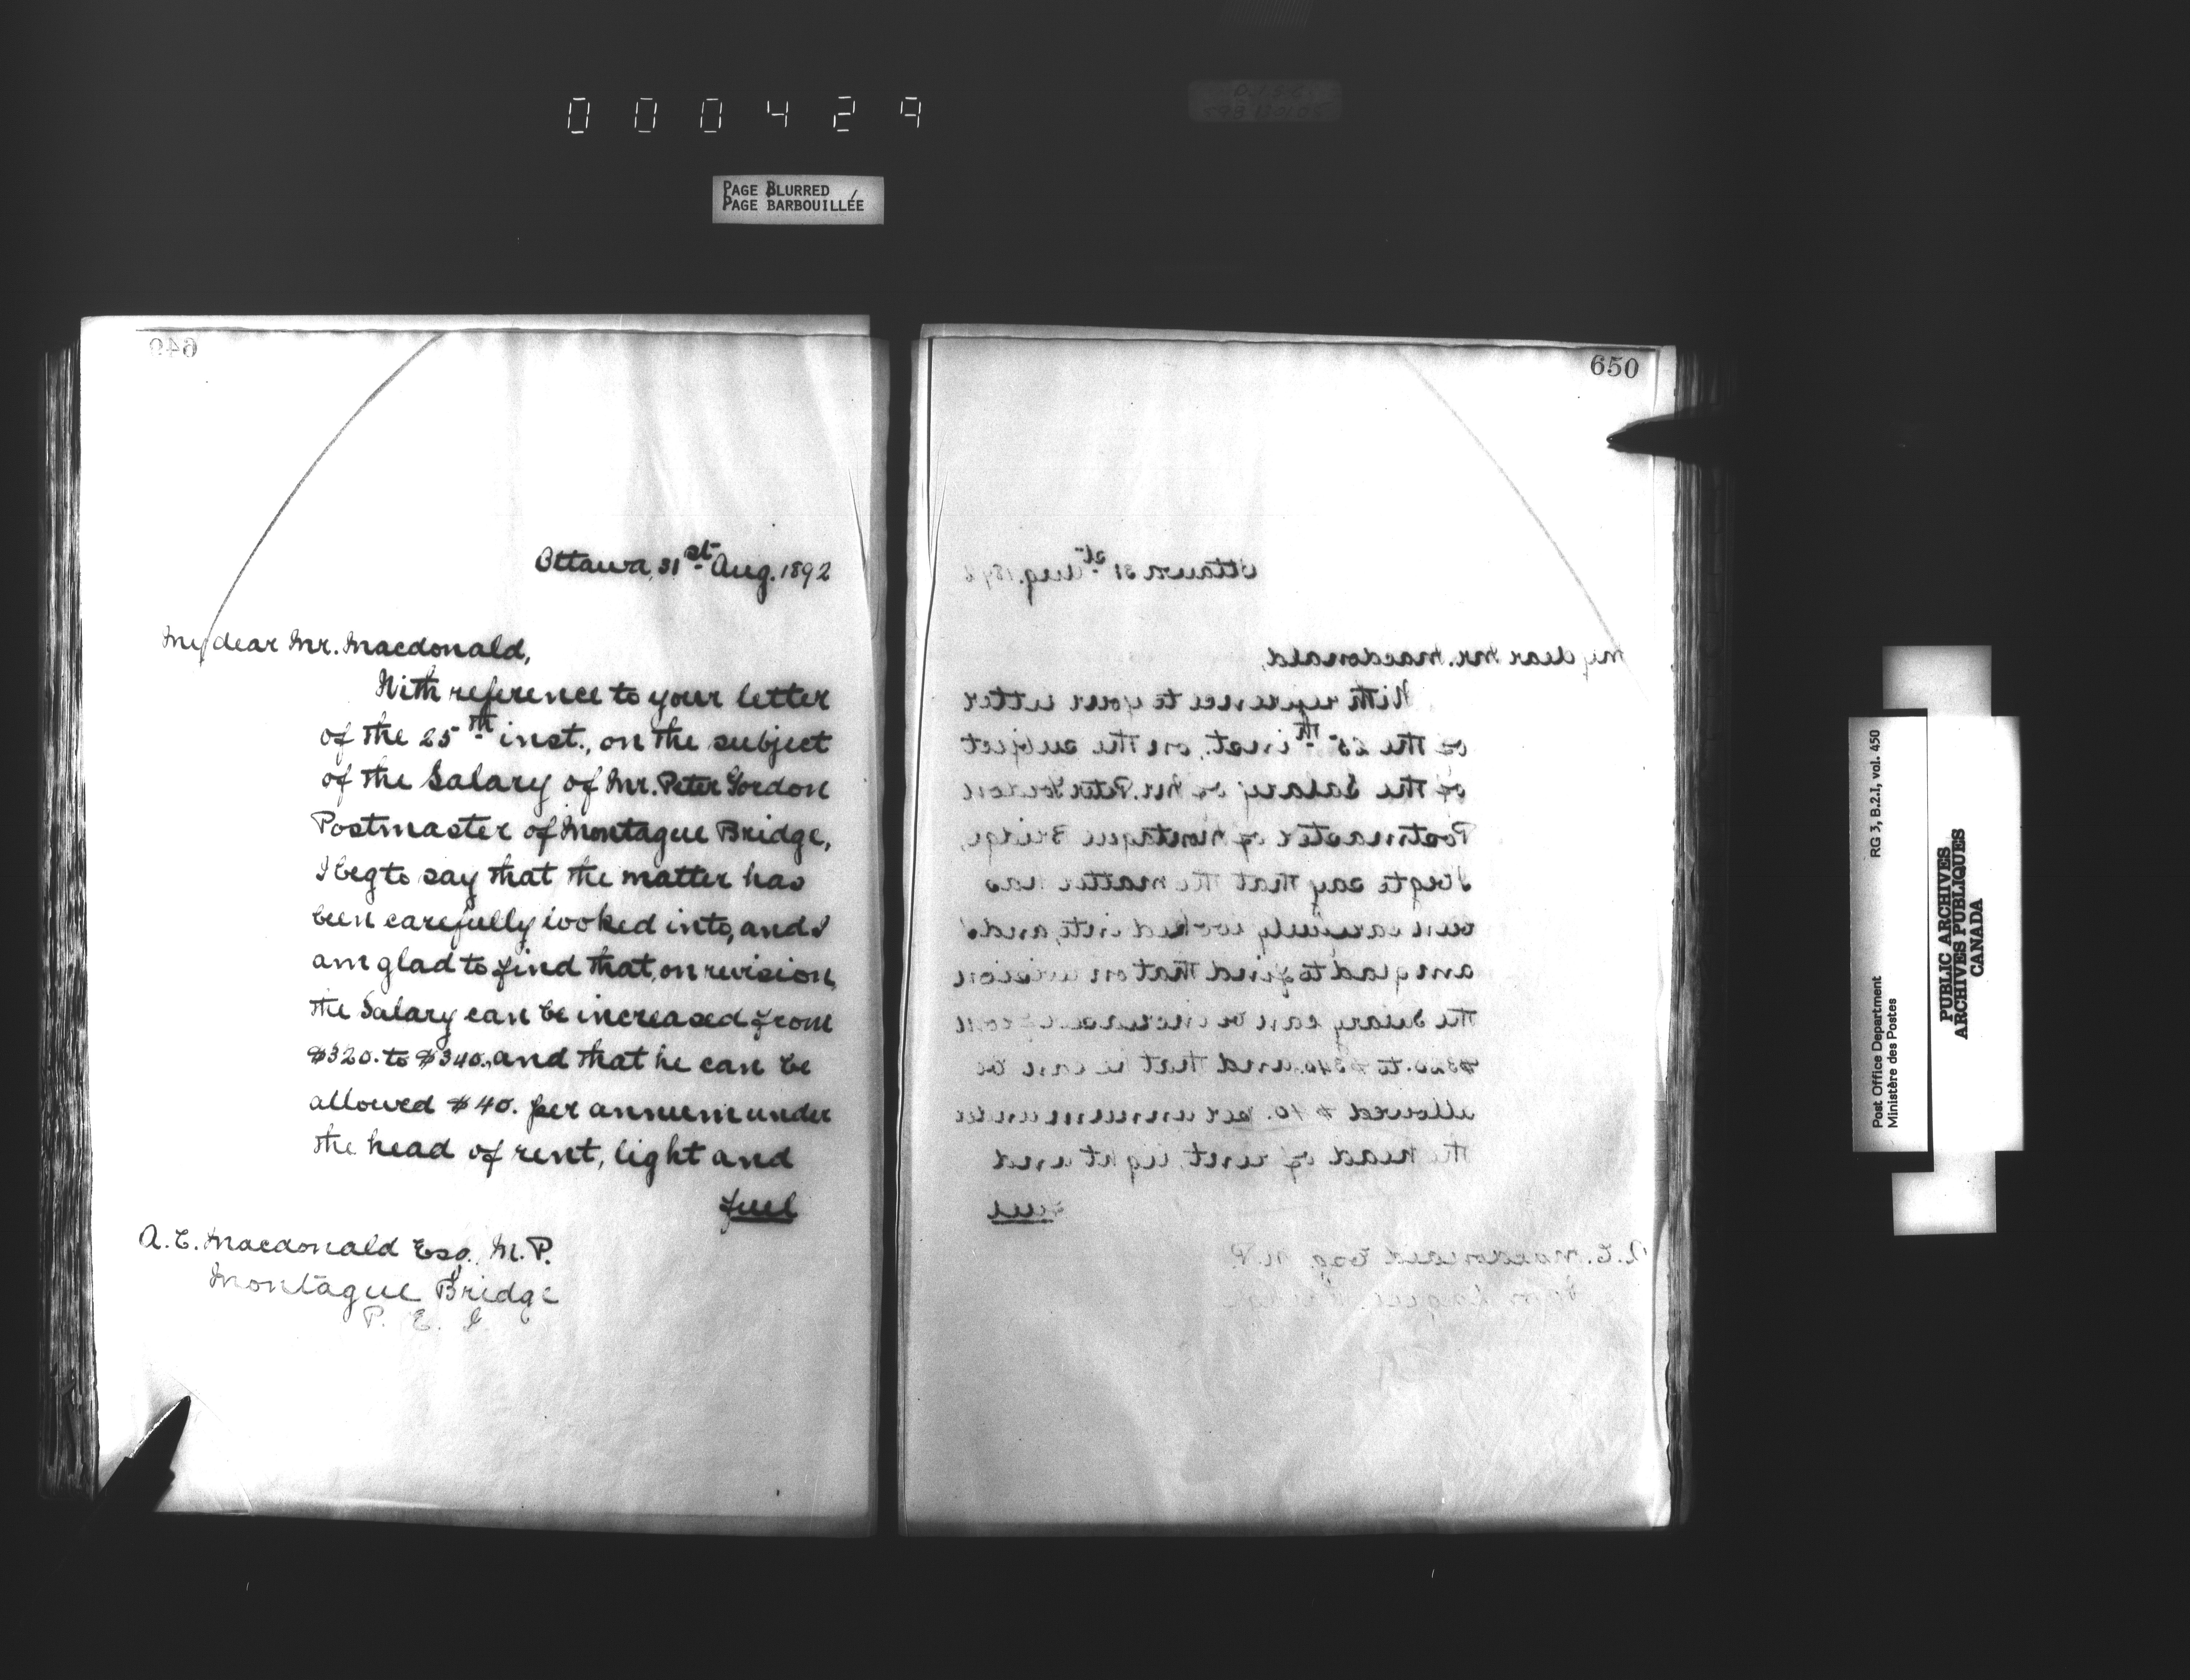 000429
PAGE BLURRED
PAGE BARBOUILLÉE
649
Ottawa, 31st Aug. 1892
My dear Mr. Macdonald,
With reference to your letter
of the 25th inst., on the subject
of the Salary of Mr. Peter Gordon
Postmaster of Montague Bridge,
I beg to say that the matter has
been carefully looked into, and I
am glad to find that, on revision,
the Salary can be increased from
$320. to $340., and that he can be
allowed $40. per annum under
the head of rent, light and
fuel
A. C. Macdonald Esq. M.P.
Montague Bridge
P. E. I.
650
Ottawa 31st Aug. 1892
My dear Mr. Macdonald,
With reference to your letter
of the 25th inst., on the subject
of the Salary of Mr. Peter Gordon
Postmaster of Montague Bridge,
I beg to say that the matter has
been carefully looked into, and I
am glad to find that on revision
the Salary can be increased from
$320. to $340. and that he can be
allowed $40. per annum under
the head of rent, light and
fuel
A. C. Macdonald Esq. M.P.
Montague Bridge
Post Office Department
Ministère des Postes
RG 3, B.2.I, vol. 450
PUBLIC ARCHIVES
ARCHIVES PUBLIQUES
CANADA